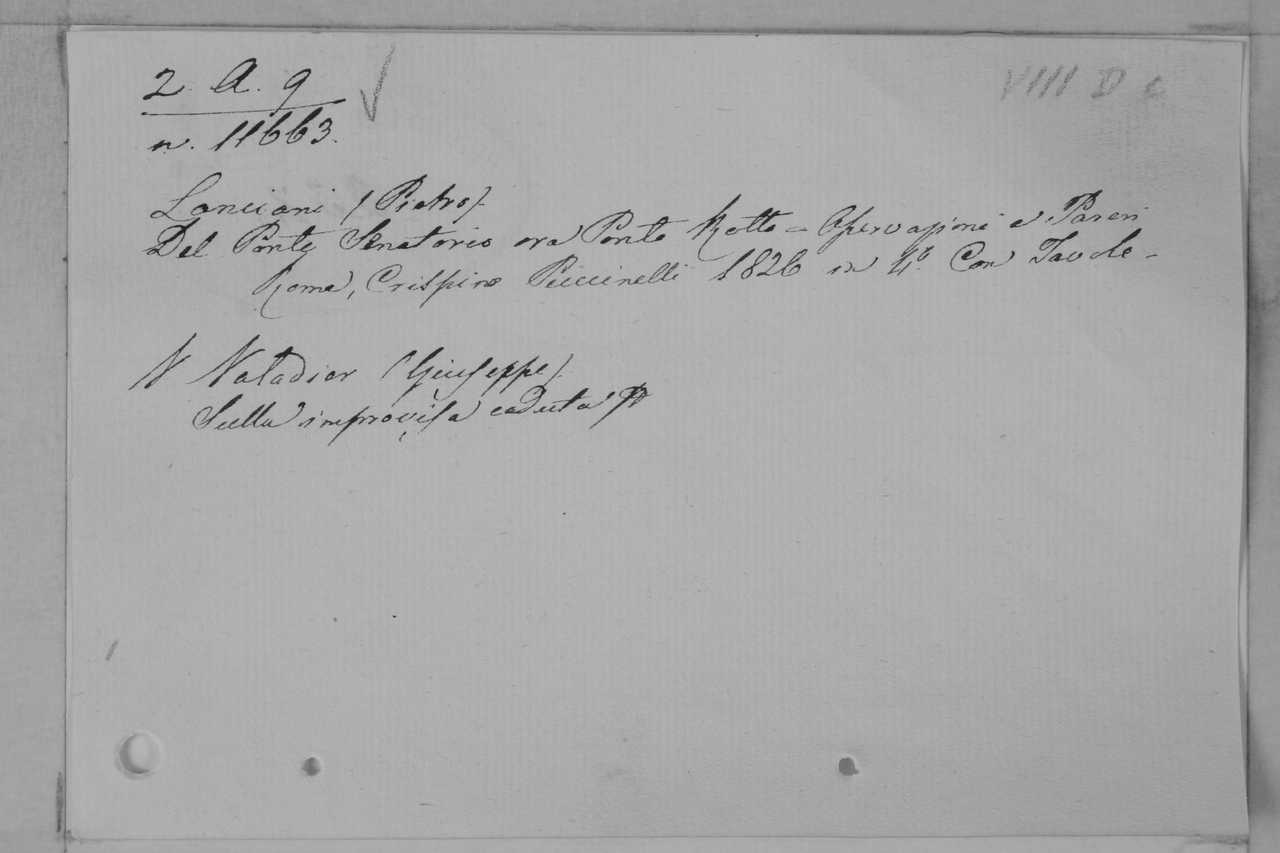 2. A. 9
VIII D c
n. 11663.
Lanciani (Pietro).
Del Ponte Senatorio ora Ponte Rotto = Osservazioni e Pareri
Roma, Crispino Puccinelli 1826 in 4.º Con Tavole -
N Valadier (Giuseppe).
Sulla improvisa caduta